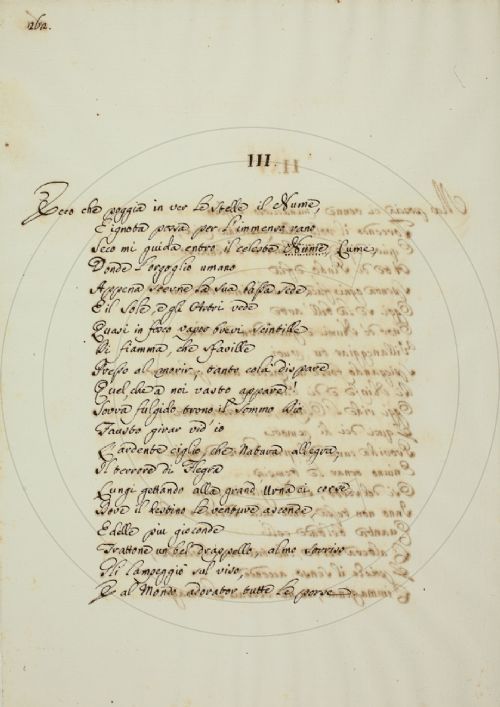 262.
III.
Ecco che poggia in ver le Stelle il Nume,
E ignota possa per l'immenso vano
Seco mi guida entro il celeste Nume, Lume,
Donde l'orgoglio umano
Appena scerne la sua bassa sede,
E il Sole, e gli Astri vede
Quasi in fosco vapor brevi scintille
Di fiamma, che sfaville
Presso al morir; tanto colà dispare
Quel che a noi vasto appare!
Sovra fulgido trono il Sommo Dio
Fausto girar vid'io
L'ardente ciglio, che Natura allegra,
Il terrore di Flegra
Lungi gettando alla grand'Urna ei corse
Dove il Destino le venture asconde,
E delle piu gioconde
Trattone un bel drappello, almo sorriso
Gli lampeggiò sul viso,
E al Mondo adorator tutte le porse